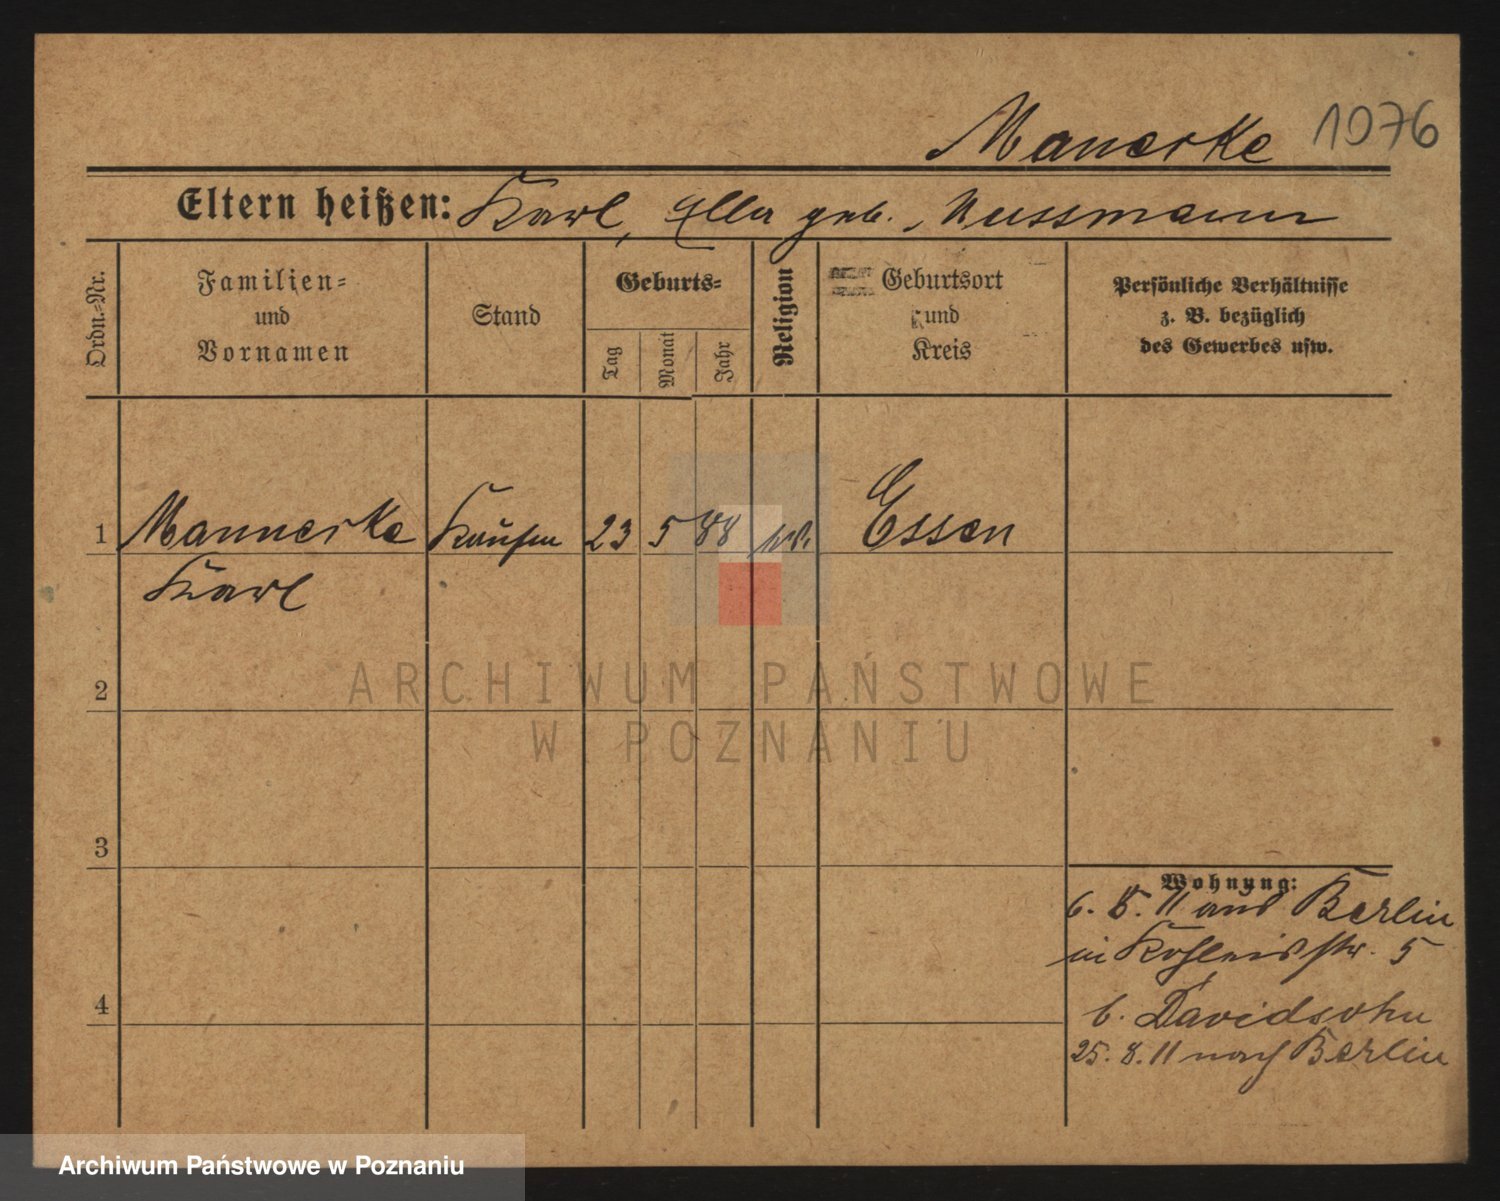 Manerke 1076
Eltern heißen: Karl, Ella geb. Nussmann
Ordn.-Nr.
Familien=
und
Vornamen
Stand
Geburts=
Tag
Monat
Jahr
Religion
Geburtsort
und
Kreis
Persönliche Verhältnisse
z. B. bezüglich
des Gewerbes usw.
1 Mannerke 23 5 88 Essen
Karl
2
3
4
Wohnung:
6. 8. 11 aus Berlin
in str. 5
b. Davidsohn
25. 8. 11 nach Berlin
ARCHIWUM PAŃSTWOWE
W POZNANIU
Archiwum Państwowe w Poznaniu